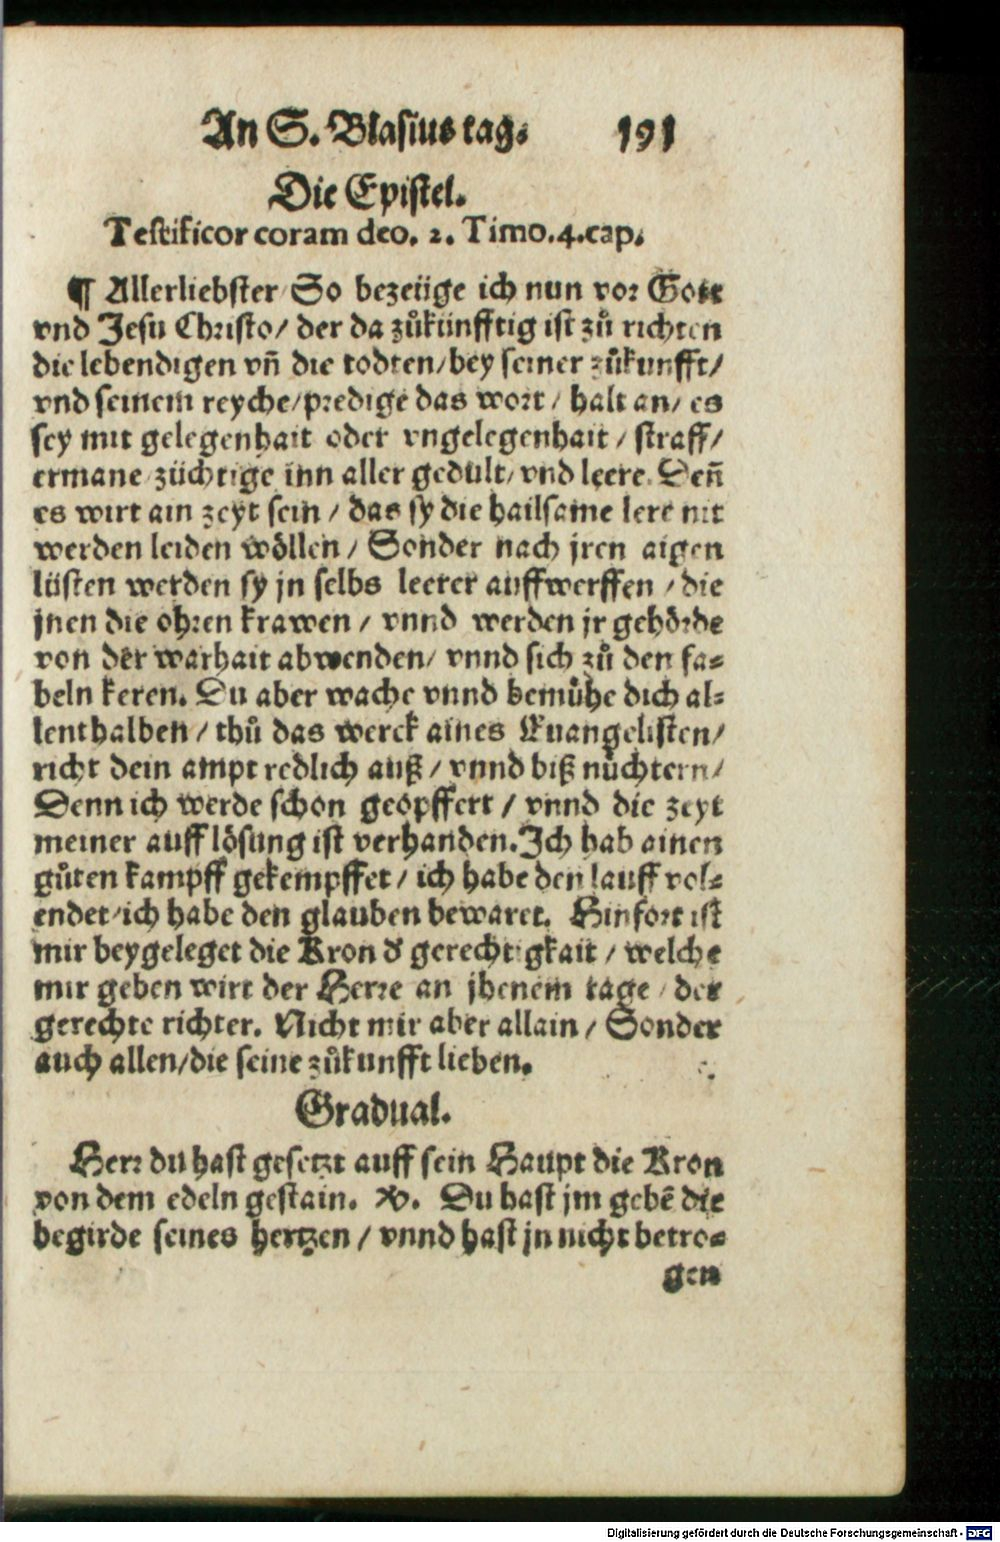 An S. Blasius tag. 191
Die Epistel.
Testificor coram deo. 2. Timo.4.cap.
¶ Allerliebster So bezeüge ich nun vor Gott
vnd Jesu Christo/ der da zůkünfftig ist zů richten
die lebendigen vn̄ die todten/bey seiner zůkunfft/
vnd seinem reyche/predige das wort/ halt an/ es
sey mit gelegenhait oder vngelegenhait/ straff/
ermane züchtige inn aller gedult/ vnd leere. Den̄
es wirt ain zeyt sein/ das sy die hailsame lere nit
werden leiden wöllen/ Sonder nach jren aigen
lüsten werden sy jn selbs leerer auffwerffen/ die
jnen die ohren krawen/ vnnd werden jr gehörde
von der warhait abwenden/ vnnd sich zů den fa-
beln keren. Du aber wache vnnd bemůhe dich al-
lenthalben/ thů das werck aines Euangelisten/
richt dein ampt redlich auß/ vnnd biß nůchtern/
Denn ich werde schon geopffert/ vnnd die zeyt
meiner aufflösung ist verhanden. Ich hab ainen
gůten kampff gekempffet/ ich habe den lauff vol-
endet/ich habe den glauben bewaret. Hinfort ist
mir beygeleget die Kron d' gerechtigkait/ welche
mir geben wirt der Herre an jhenem tage/ der
gerechte richter. Nicht mir aber allain/ Sonder
auch allen/die seine zůkunfft lieben.
Gradual.
Herr du hast gesetzt auff sein Haupt die Kron
von dem edeln gestain. ℣. Du hast jm gebē die
begirde seines hertzen/ vnnd hast jn nicht betro-
gen
Digitalisierung gefördert durch die Deutsche Forschungsgemeinschaft - DFG